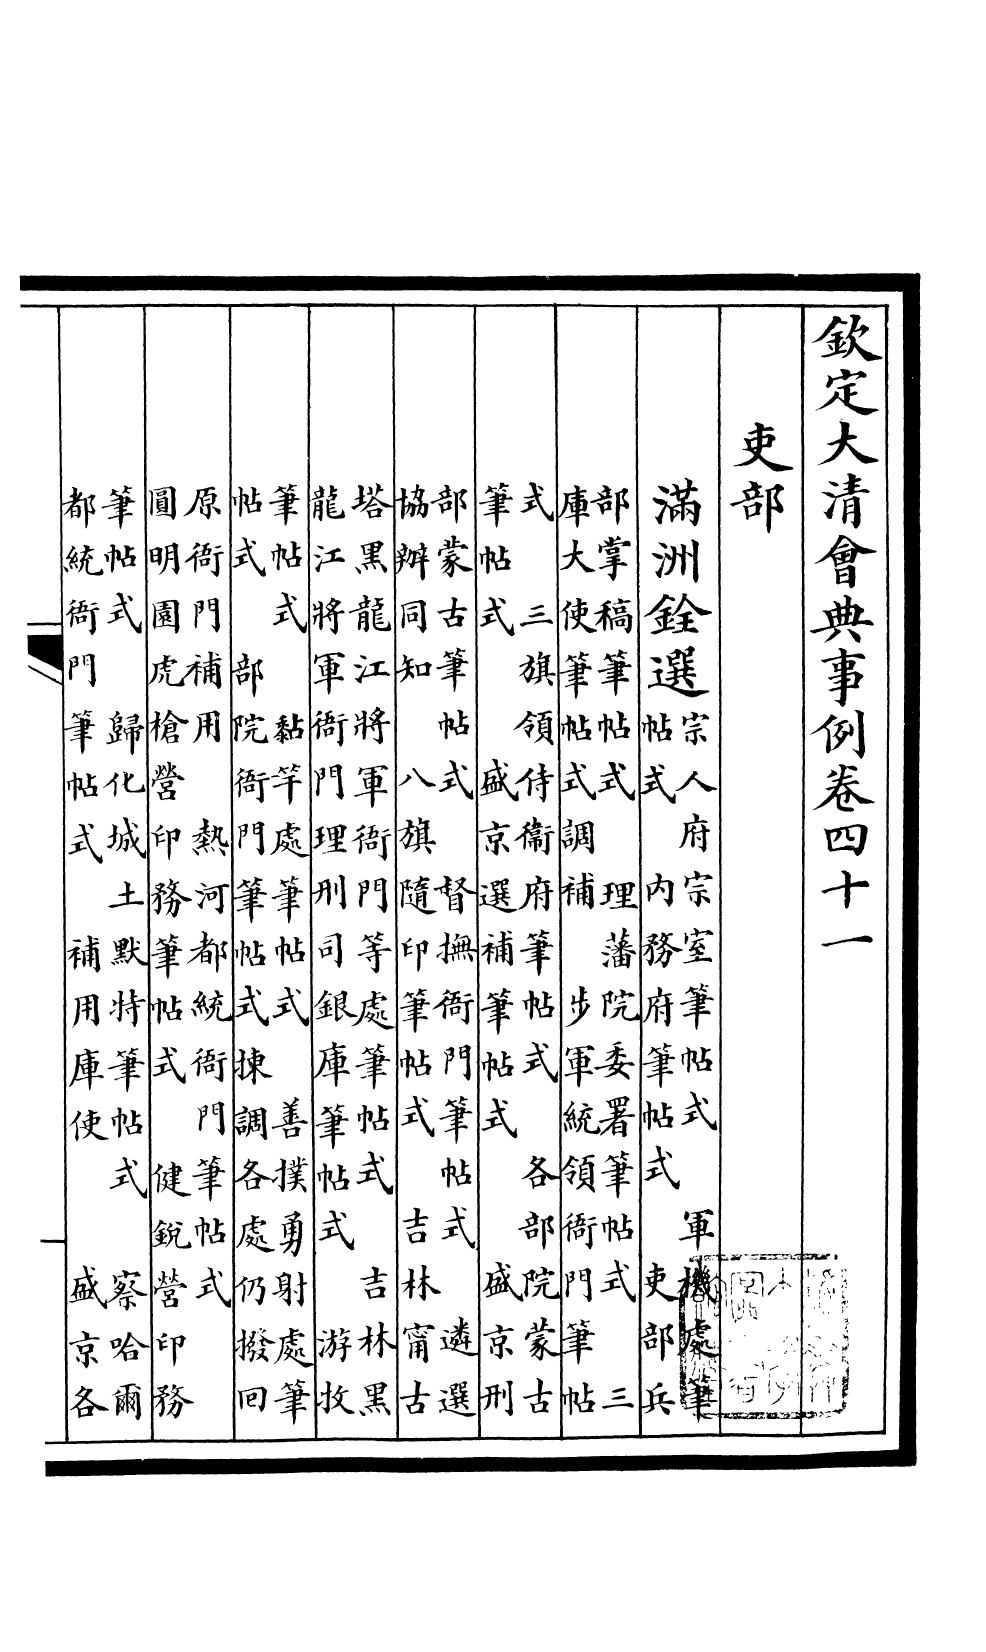 欽定大清會典事例卷四十一
吏部
滿洲銓選
宗人府宗室筆帖式 軍機處筆
帖式 內務府筆帖式 吏部兵
部掌稿筆帖式 理藩院委署筆帖式 三
庫大使筆帖式調補 步軍統領衙門筆帖
式 三旗領侍衞府筆帖式 各部院蒙古
筆帖式 盛京選補筆帖式 盛京刑
部蒙古筆帖式 督撫衙門筆帖式 遴選
協辦同知 八旗隨印筆帖式 吉林甯古
塔黑龍江將軍衙門等處筆帖式 吉林黑
龍江將軍衙門理刑司銀庫筆帖式 游牧
筆帖式 黏竿處筆帖式 善撲勇射處筆
帖式 部院衙門筆帖式揀調各處仍撥回
原衙門補用 熱河都統衙門筆帖式
圓明園虎槍營印務筆帖式 健銳營印務
筆帖式 歸化城土默特筆帖式 察哈爾
都統衙門筆帖式 補用庫使 盛京各